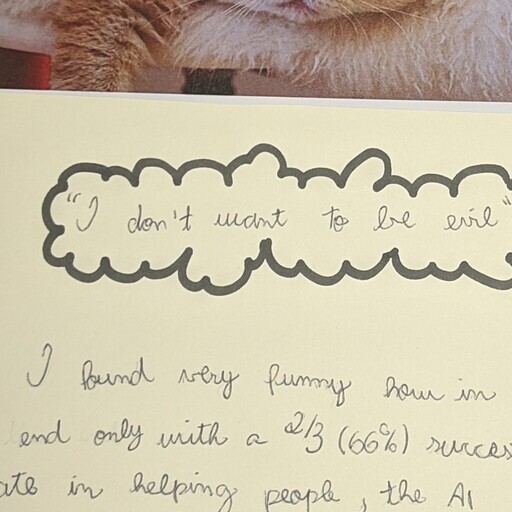 "I don't want to be evil"
I found very funny how in
end only with a 2/3 (66%) succes
ate in helping people, the AI